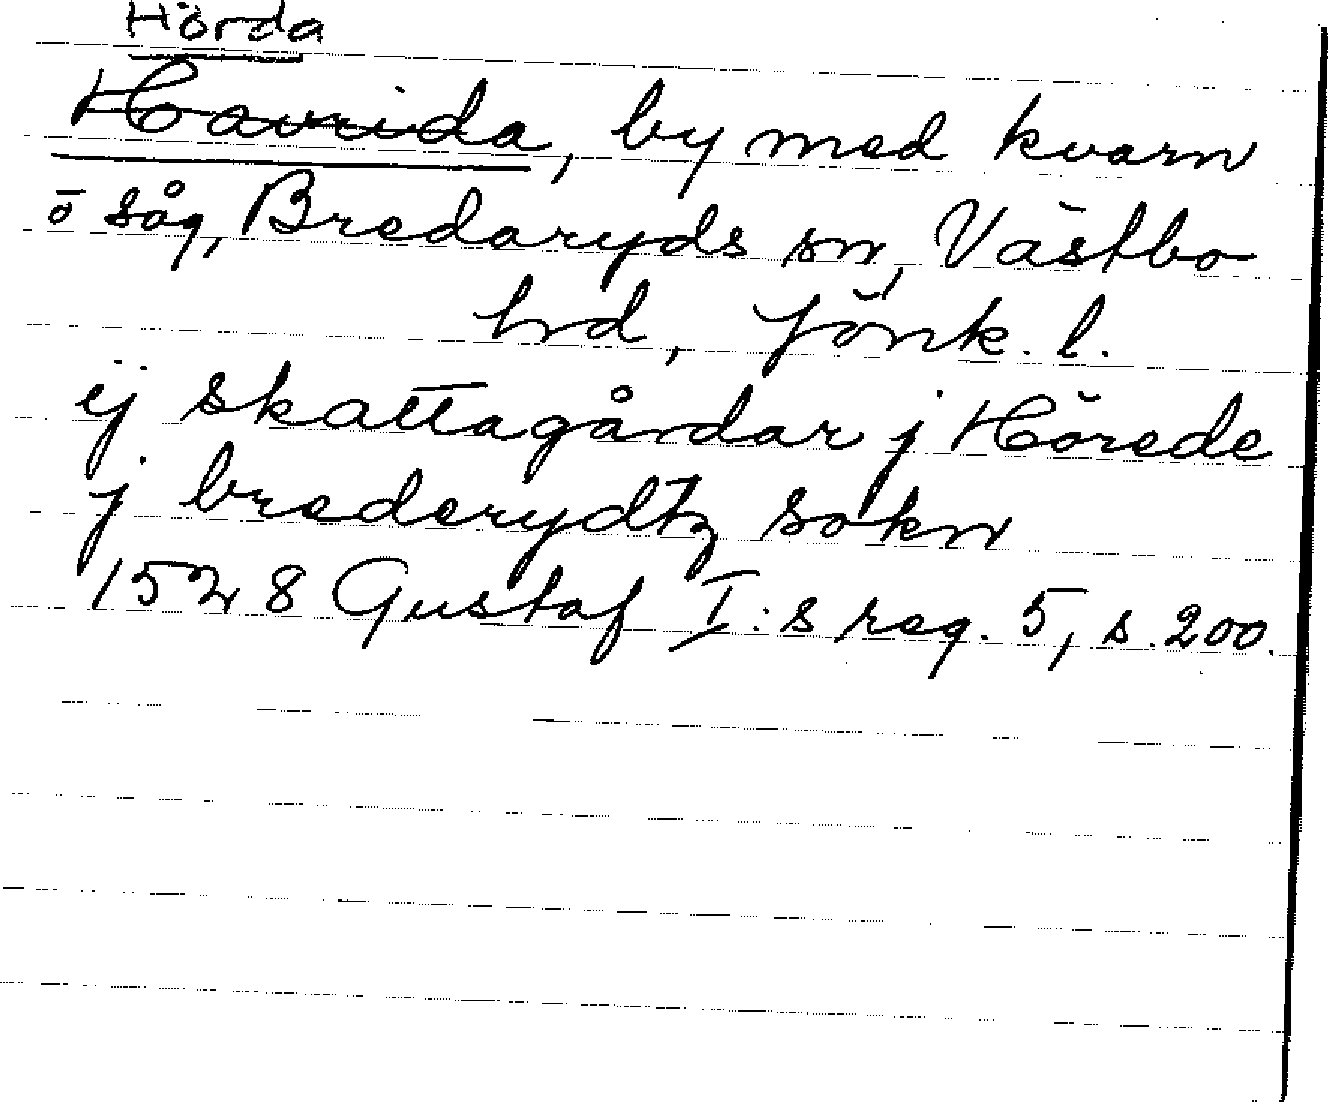 Hörda
Havrida, by med kvarn
o såg, Bredaryds sn, Västbo
hd, Jönk. l.
ij skattagårdar j Hörede
j brederydtz sokn
1528 Gustaf I:s reg. 5, s. 200.